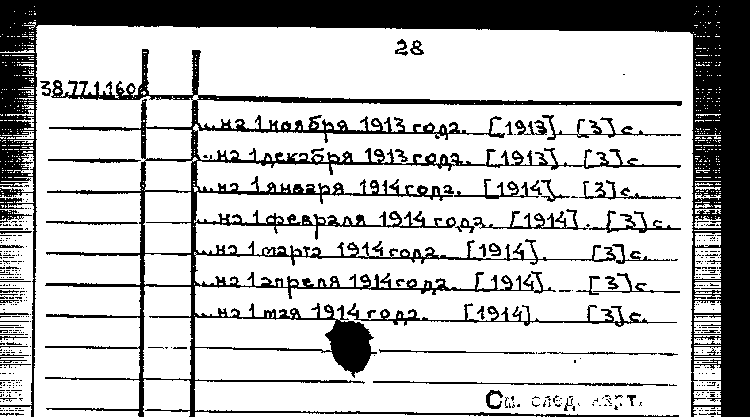 28
38.77.1.160
...на 1 ноября 1913 года. [1913]. [3] с.
...на 1 декабря 1913 года. [1913]. [3] с.
...на 1 января 1914 года. [1914]. [3] с.
...на 1 февраля 1914 года. [1914]. [3] с.
...на 1 марта 1914 года. [1914]. [3] с.
...на 1 апреля 1914 года. [1914]. [3] с.
...на 1 мая 1914 года. [1914]. [3] с.
См. след. карт.